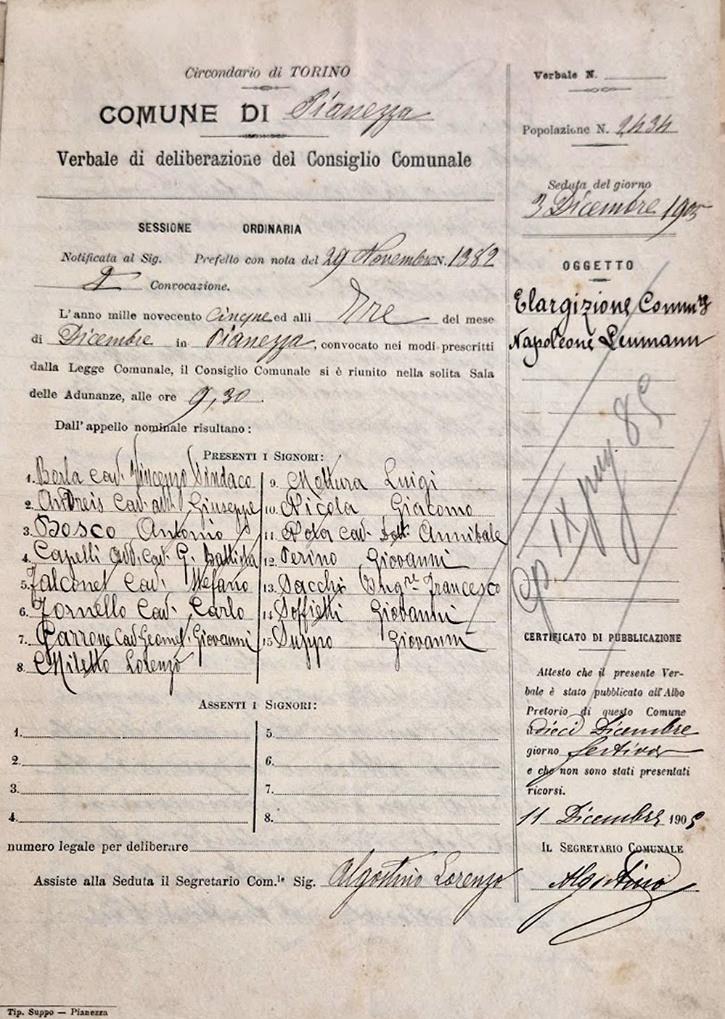 Circondario di TORINO
COMUNE DI Pianezza
Verbale di deliberazione del Consiglio Comunale
SESSIONE ORDINARIA
Notificata al Sig. Prefetto con nota del 29 Novembre N. 1382
Convocazione.
L'anno mille novecento cinque ed alli Tre del mese
di Dicembre in Pianezza, convocato nei modi prescritti
dalla Legge Comunale, il Consiglio Comunale si è riunito nella solita Sala
delle Adunanze, alle ore 9,30.
Dall'appello nominale risultano:
PRESENTI I SIGNORI:
1. Borla cav. Vincenzo Sindaco
2. Andreis Cav. Giuseppe
3. Bosco Antonio
4. Capelli avv. cav. G. Battista
5. Falconet Cav. Stefano
6. Fornello Cav. Carlo
7. Garrone Cav. Geomet. Giovanni
8. Miletto Lorenzo
9. Mottura Luigi
10. Nicola Giacomo
11. Rola cav. Dott. Annibale
12. Perino Giovanni
13. Sacchi Ing.re Francesco
14. Soffietti Giovanni
15. Suppo Giovanni
ASSENTI I SIGNORI:
1.
2.
3.
4.
5.
6.
7.
8.
numero legale per deliberare
Assiste alla Seduta il Segretario Com.le Sig. Algostino Lorenzo
Tip. Suppo — Pianezza
Verbale N.
Popolazione N. 2434
Seduta del giorno
3 Dicembre 1905
OGGETTO
Elargizione Comm.re
Napoleone Leumann
IX pag. 85
CERTIFICATO DI PUBBLICAZIONE
Attesto che il presente Verbale
è stato pubblicato all'Albo
Pretorio di questo Comune
dieci Dicembre
giorno festivo
e che non sono stati presentati
ricorsi.
11 Dicembre 1905
IL SEGRETARIO COMUNALE
Algostino